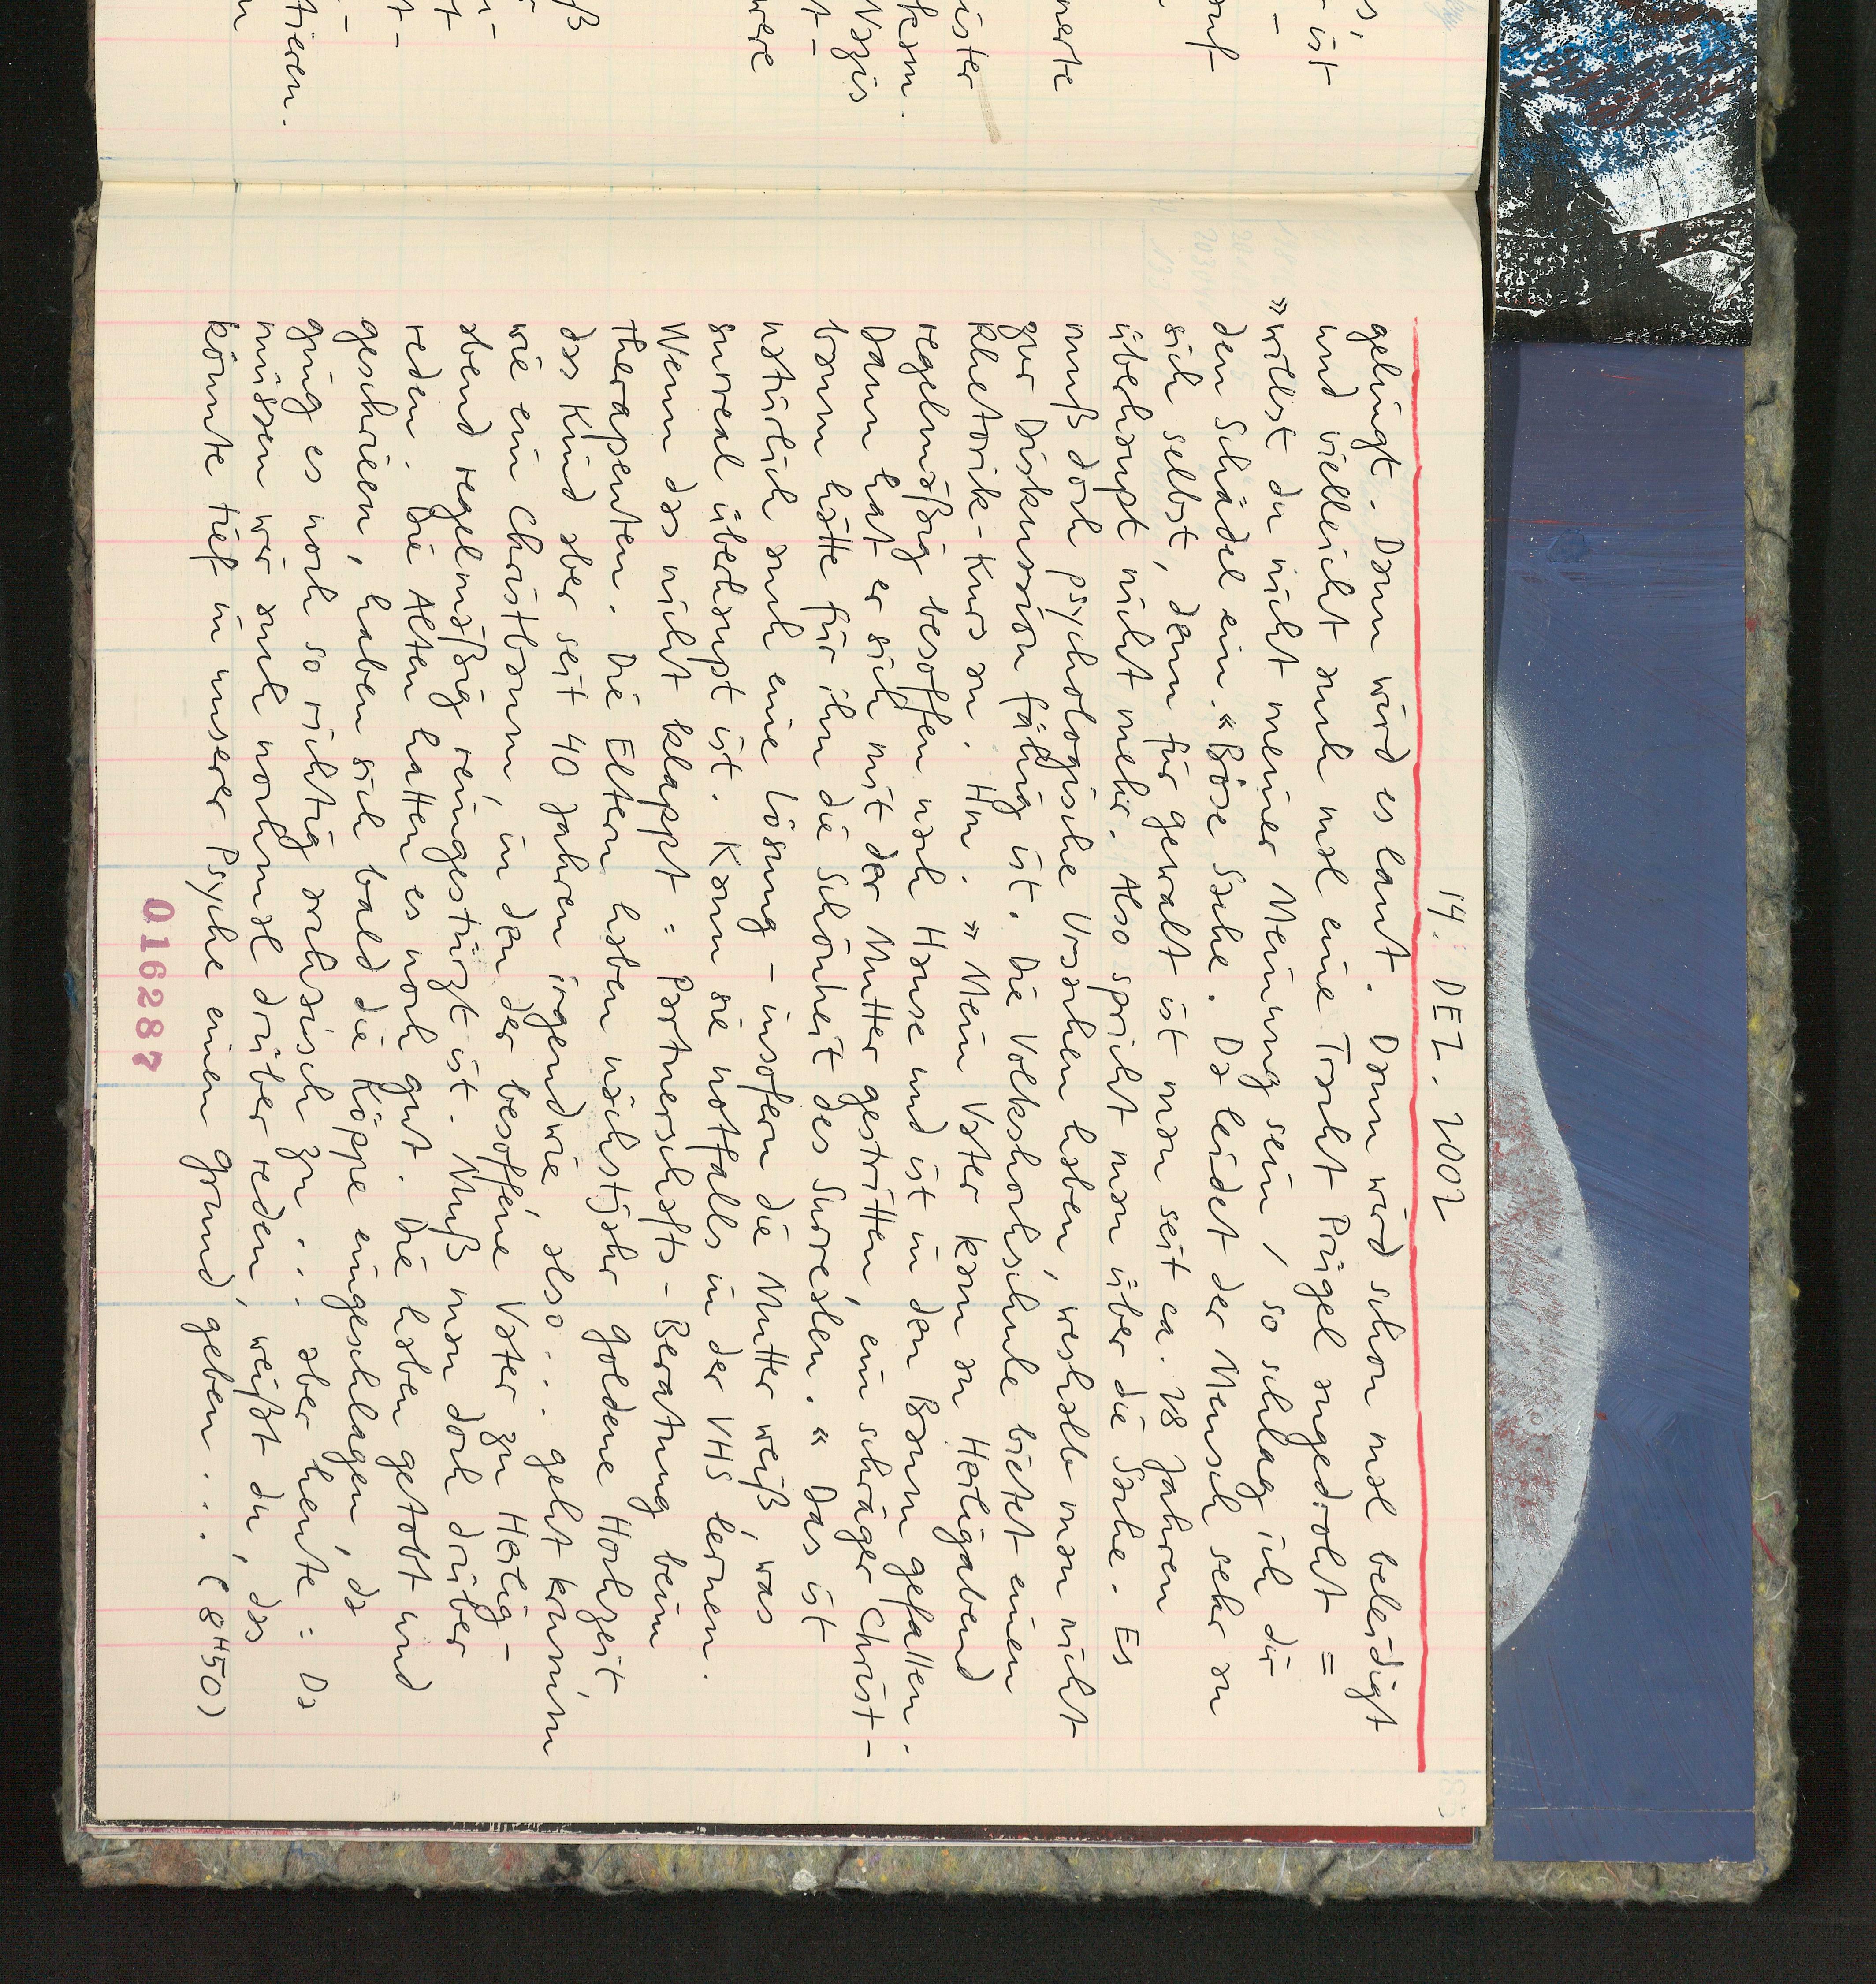 14. DEZ. 2002
gelingt. Dann wird es laut. Dann wird schon mal beleidigt
und vielleicht auch mal eine Tracht Prügel angedroht =
»willst du nicht meiner Meinung sein / so schlag ich dir
den Schädel ein.« Böse Sache. Da leidet der Mensch sehr an
sich selbst, denn für gewalt ist man seit ca. 28 Jahren
überhaupt nicht mehr. Also spricht man über die Sache. Es
muß doch psychologische Ursachen haben, weshalb man nicht
zur Diskussion fähig ist. Die Volkshochschule bietet einen
Rhetorik-Kurs an. Hm. »Mein Vater kam an Heiligabend
regelmäßig besoffen nach Hause und ist in den Baum gefallen.
Dann hat er sich mit der Mutter gestritten, ein schräger Christ-
baum hätte für ihn die Schönheit des Surrealen.« Das ist
natürlich auch eine Lösung - insofern die Mutter weiß, was
surreal überhaupt ist. Kann sie notfalls in der VHS lernen.
Wenn das nicht klappt = Partnerschafts-Beratung beim
Therapeuten. Die Eltern haben nächstjahr goldene Hochzeit
das Kind aber seit 40 Jahren irgendwie also... geht krumm
wie ein Christbaum, in den der besoffene Vater zu Heilig-
abend regelmäßig reingestürzt ist. Muß man doch drüber
reden. Die Alten hatten es noch gut. Die haben getobt und
geschrieen, haben sich bald die Köppe eingeschlagen, da
ging es noch so richtig archaisch zu... aber heute = Da
müssen wir auch nochmal drüber reden, weißt du, das
könnte tief in unserer Psyche einen grund geben... (8H50)
016287
tieren.
ß
were
Nazis
kam.
ister
nerte
auf
ist